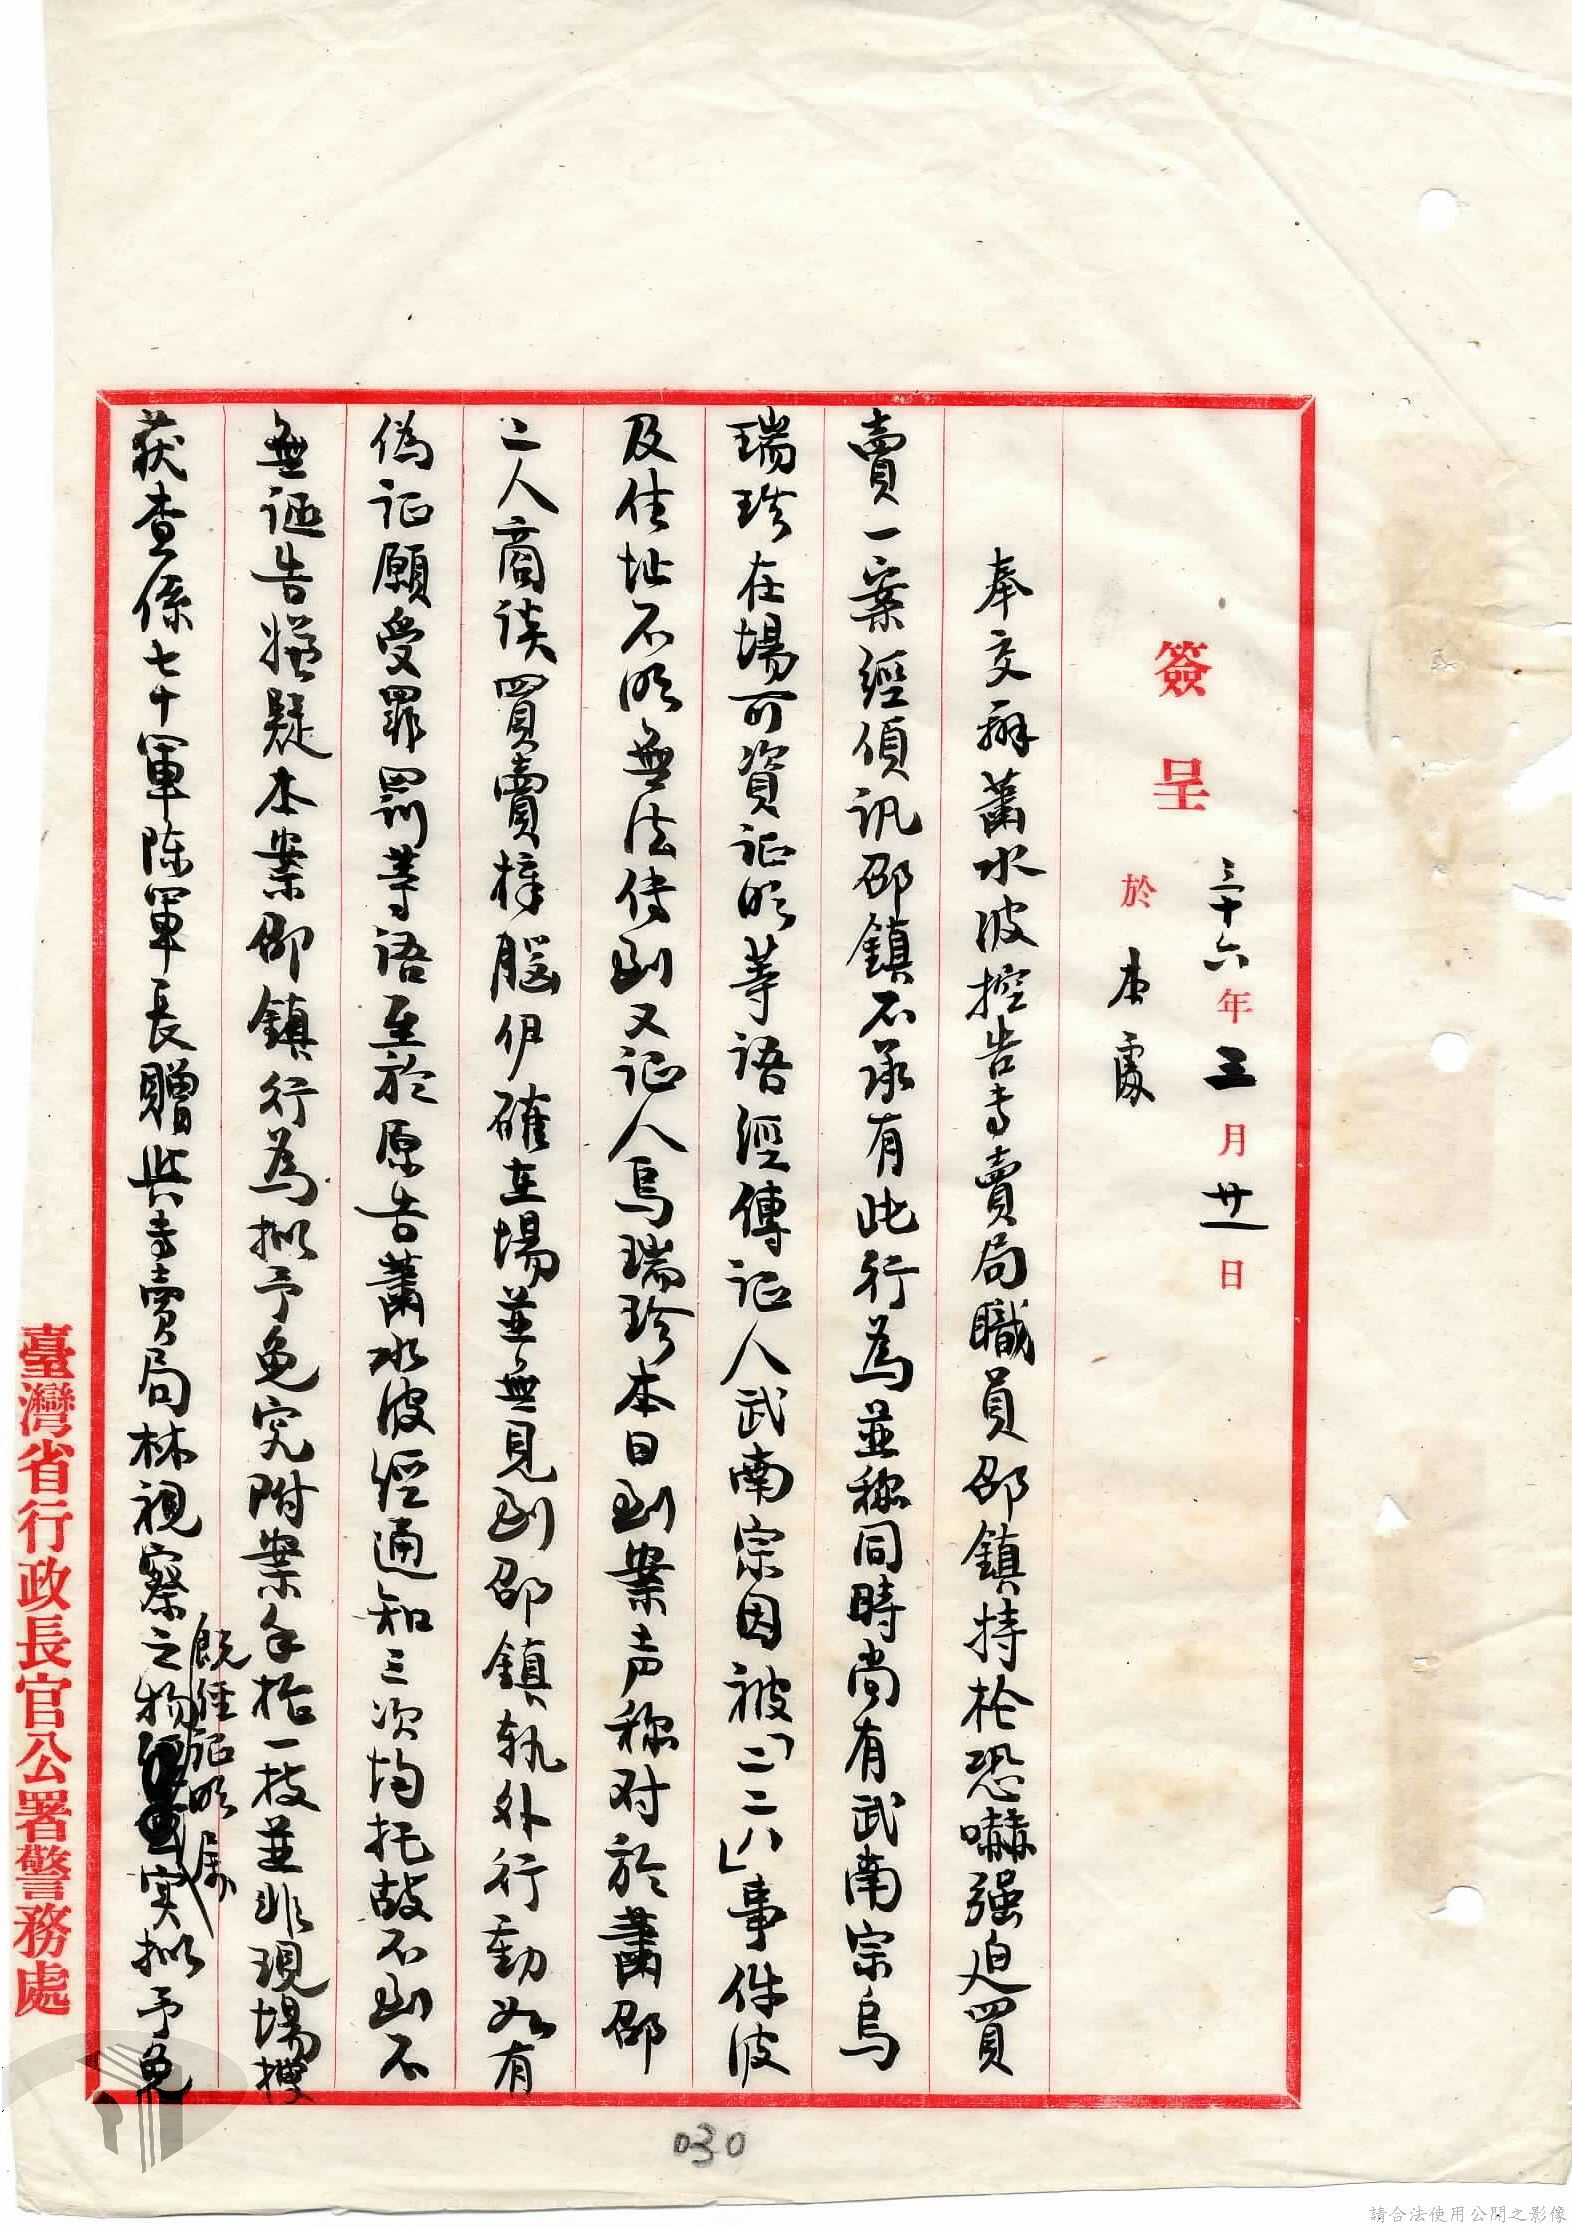 簽呈
三十六年三月廿一日
於本處
奉交辦蕭水波控告专賣局職員邵鎮持枪恐嚇强迫買
賣一案經偵訊邵鎮不承有此行為並称同時尚有武南宗烏
瑞珍在場可資证明等語經傳证人武南宗因被「二二八」事件波
及住址不明無法传到又证人烏瑞珍本日到案声称对於蕭邵
二人商谈買賣樟腦伊確在場並無見到邵鎮軌外行動如有
偽证願受罪罰等语至於原告蕭水波經通知三次均托故不到不
無誣告嫌疑本案邵鎮行為拟予免究附案手枪一枝並非現場搜
获查係七十軍陈軍長贈與专賣局林視察之物既經证明属实拟予免
臺灣省行政長官公署警務處
030
請合法使用公開之影像